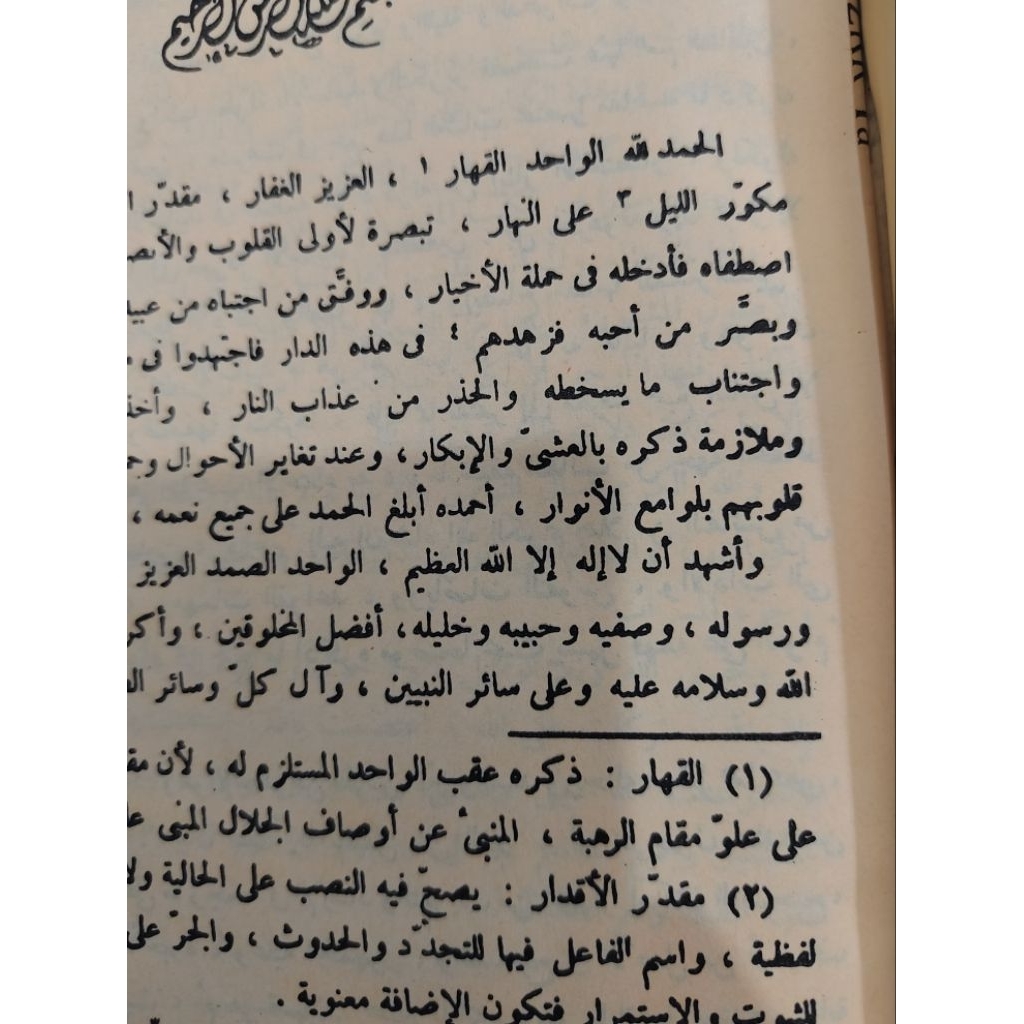 بسم الله الرحمن الرحيم
الحمد لله الواحد القهار ١ ، العزيز الغفار ، مقدّر
مكوّر الليل ٣ على النهار ، تبصرة لأولى القلوب
اصطفاه فأدخله فى جملة الأخيار ، ووفَّق من اجتباه من
وبصَّر من أحبه فزهدهم ٤ فى هذه الدار فاجتهدوا فى
واجتناب ما يسخطه والحذر من عذاب النار ،
وملازمة ذكره بالعشىّ والإبكار ، وعند تغاير الأحوال
قلوبهم بلوامع الأنوار ، أحمده أبلغ الحمد على جميع نعمه ،
وأشهد أن لا إله إلا الله العظيم ، الواحد الصمد العزيز
ورسوله ، وصفيه وحبيبه وخليله ، أفضل المخلوقين ،
الله وسلامه عليه وعلى سائر النبيين ، وآل كلّ وسائر
(١) القهار : ذكره عقب الواحد المستلزم له ، لأن
على علوّ مقام الرهبة ، المنبئ عن أوصاف الجلال المبنى
(٢) مقدّر الأقدار : يصحّ فيه النصب على الحالية
لفظية ، واسم الفاعل فيها للتجدّد والحدوث ، والجرّ على
للثبوت والاستمرار فتكون الإضافة معنوية .